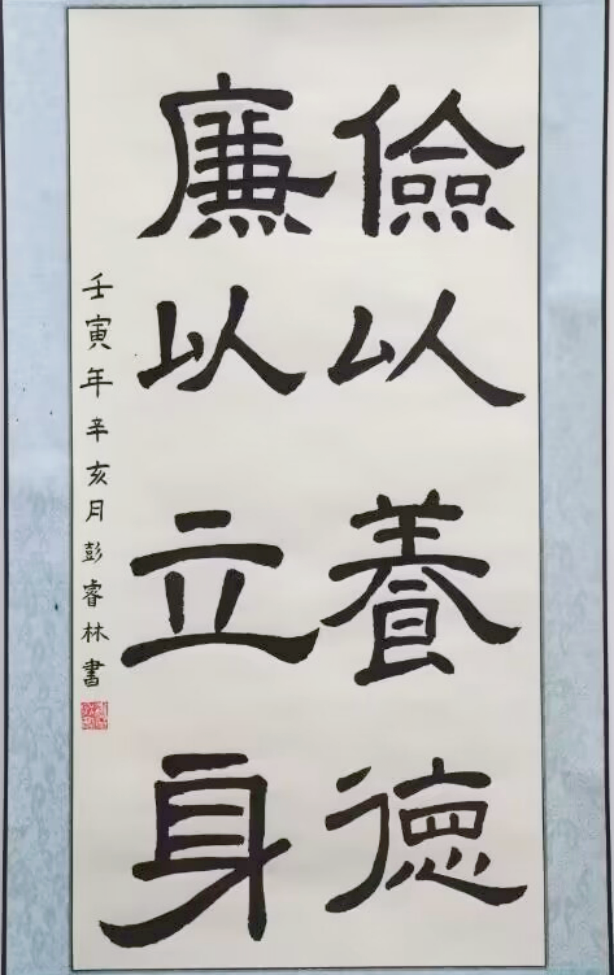 儉以養德
廉以立身
壬寅年辛亥月彭睿林書